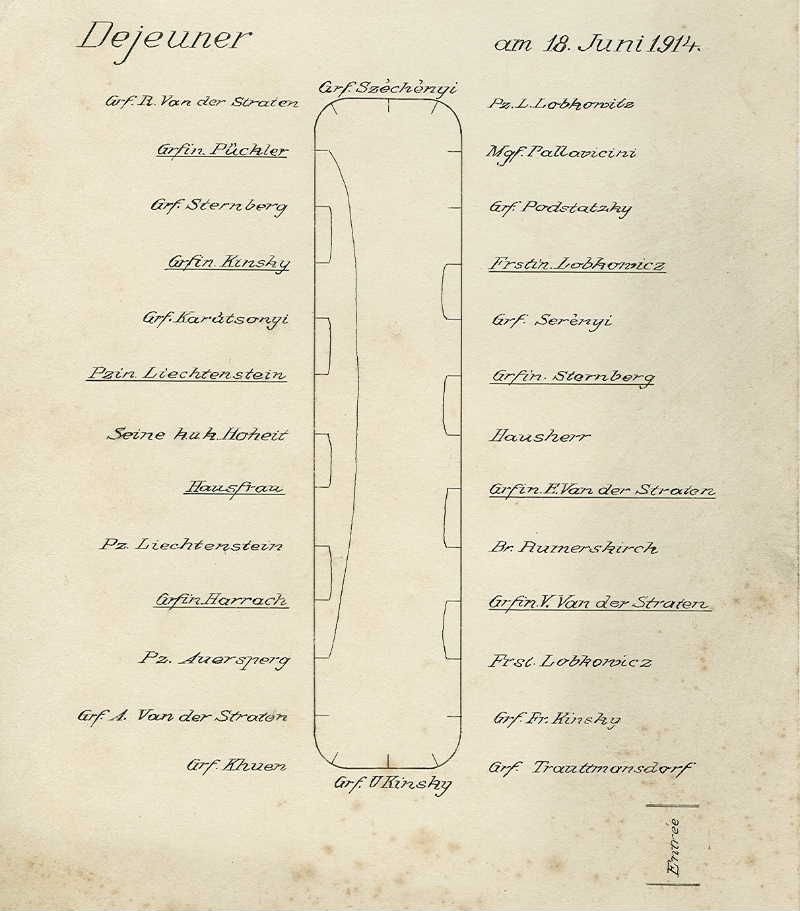 Dejeuner
am 18. Juni 1914.
Grf. Széchényi
Grf. R. Van der Straten
Pz. L. Lobkowitz
Grfin. Pückler
Mgf. Pallavicini
Grf. Sternberg
Grf. Podstatzky
Grfin. Kinsky
Frstin. Lobkowicz
Grf. Karátsonyi
Grf. Serényi
Pzin. Liechtenstein
Grfin. Sternberg
Seine k.u.k. Hoheit
Hausherr
Hausfrau
Grfin. F. Van der Straten
Pz. Liechtenstein
Br. Rumerskirch
Grfin. Harrach
Grfin. V. Van der Straten
Pz. Auersperg
Frst. Lobkowicz
Grf. A. Van der Straten
Grf. Fr. Kinsky
Grf. Khuen
Grf. Trauttmansdorf
Grf. U Kinsky
Entrée